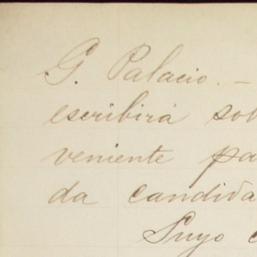 G. Palacio. —
escribirá sob
veniente pa
da candida
Suyo